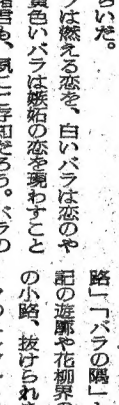 らいだ。
は燃える恋を、白いバラは恋のや
黄色いバラは嫉妬の恋を現わすこと
存知だろう。バラの
路」「バラの隅」
記の遊廓や花柳界の
の小路、抜けられ